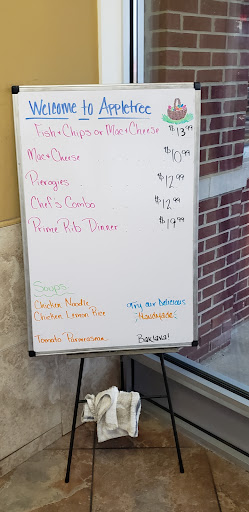 Welcome to Appletree
Fish + Chips or Mac + Cheese $13.99
Mac + Cheese $10.99
Pierogies $12.99
Chef's Combo $12.99
Prime Rib Dinner $19.99
Soups
Chicken Noodle
Chicken Lemon Rice
Tomato Parmesan
Try our Delicious
Homemade
Baklava!